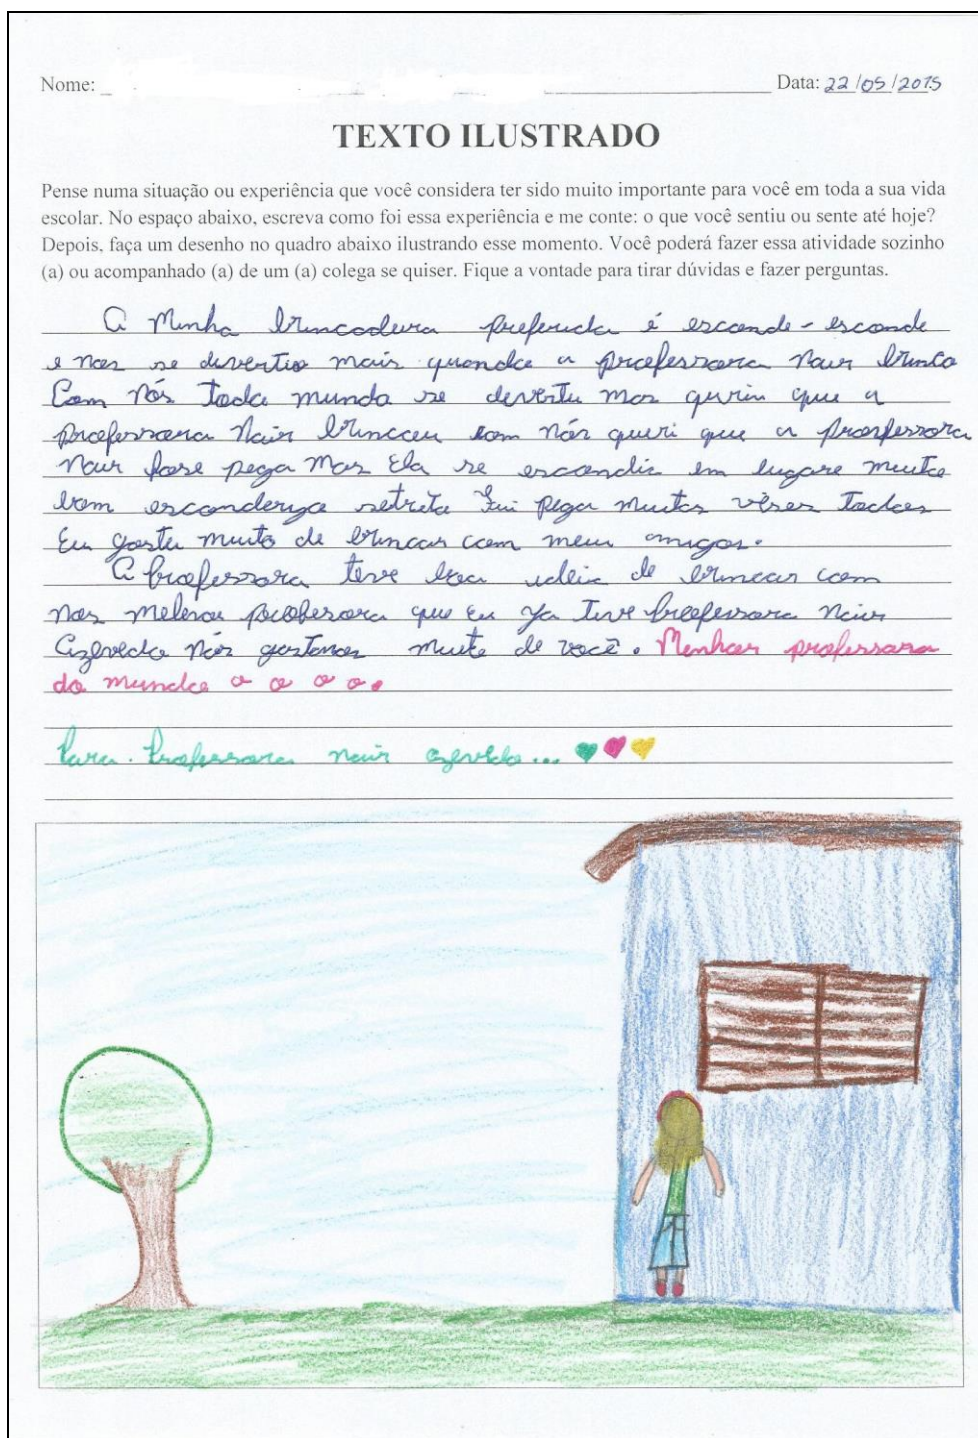 Nome: Data: 22/05/2015
TEXTO ILUSTRADO
Pense numa situação ou experiência que você considera ter sido muito importante para você em toda a sua vida
escolar. No espaço abaixo, escreva como foi essa experiência e me conte: o que você sentiu ou sente até hoje?
Depois, faça um desenho no quadro abaixo ilustrando esse momento. Você poderá fazer essa atividade sozinho
(a) ou acompanhado (a) de um (a) colega se quiser. Fique a vontade para tirar dúvidas e fazer perguntas.
A Minha brincadeira preferida é esconde-esconde
e nos se divertio mais quando a professora Nair brinco
Com Nós Todo mundo se devertu mas queriu que a
professora Nair brincou com nós queri que a prorfessora
Nair fose pega Mas Ela se escondia em lugare muito
bom esconderijo Fui pega muitas vêses Todos
Eu gostu muito de brincar com meus amigos.
A professora teve boa ideia de brincar com
nos melhor professora que Eu ja Tive professora Nair
Azevedo Nós gostamos muito de você. Menhor professora
do mundo o o o o.
Para. Professora nair azevedo...